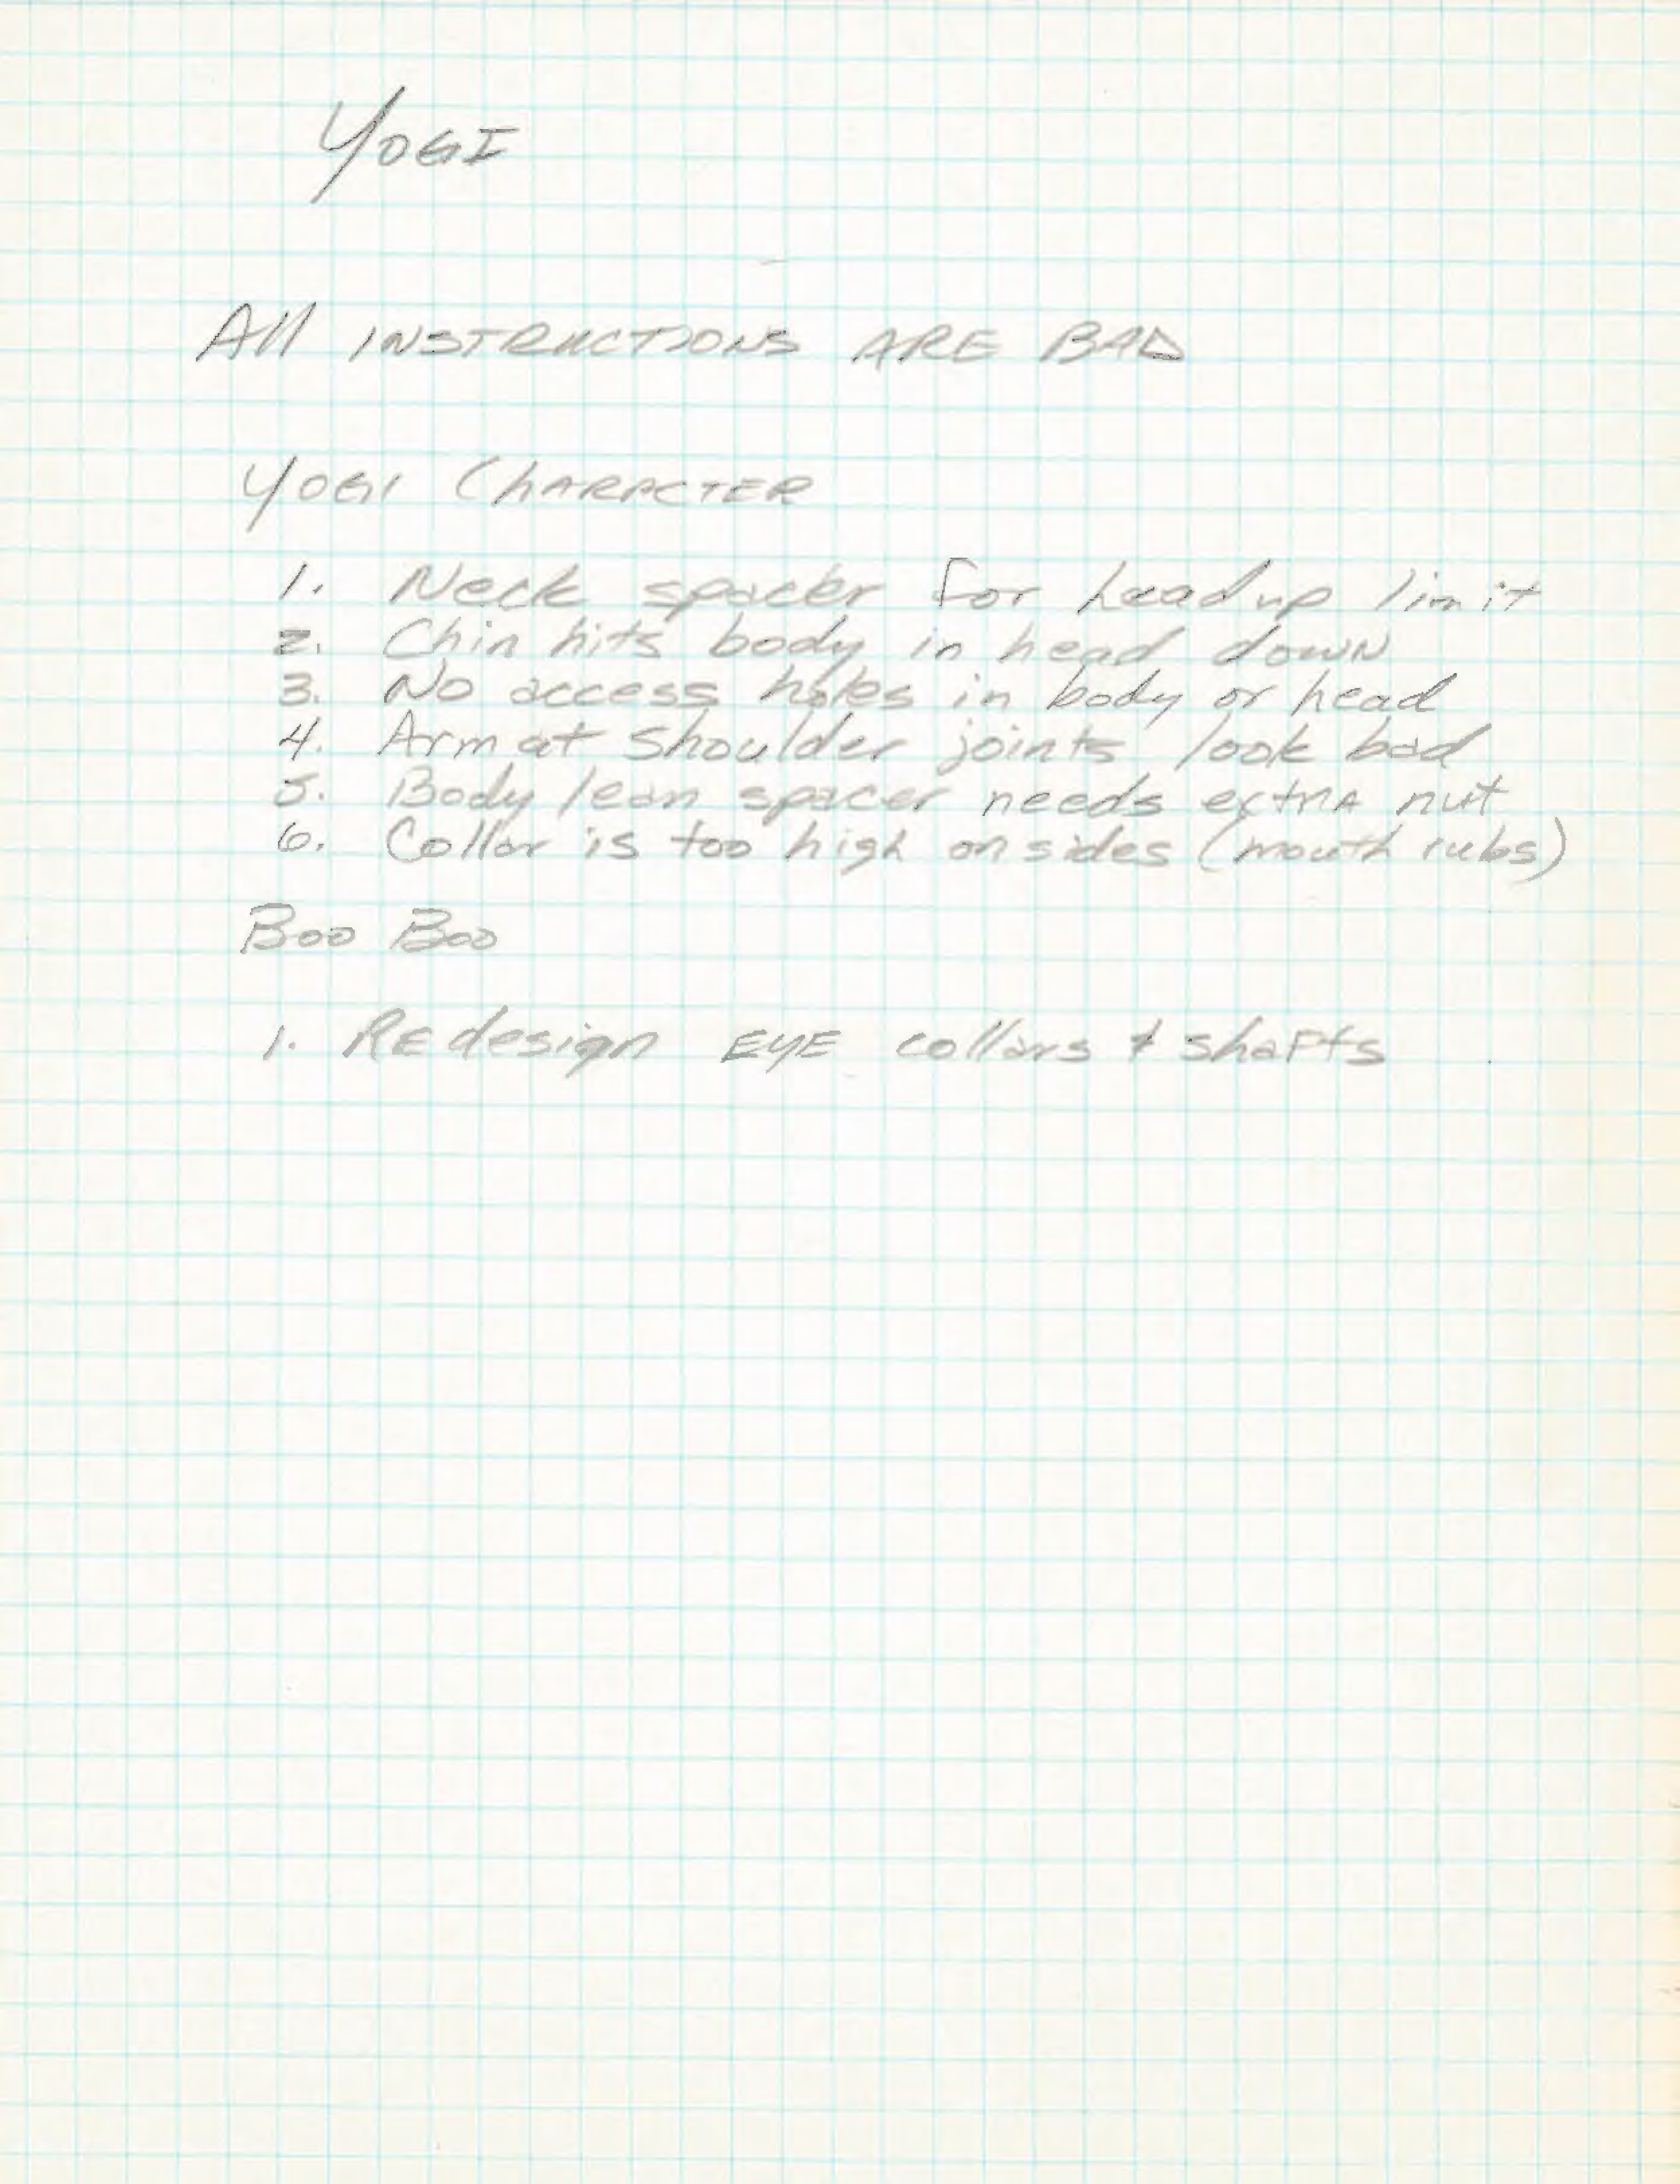 YOGI
All INSTRUCTIONS ARE BAD
YOGI ChARACTER
1. Neck spacer for head up limit
2. Chin hits body in head down
3. No access holes in body or head
4. Arm at shoulder joints look bad
5. Body lean spacer needs extra nut
6. Collar is too high on sides (mouth rubs)
Boo Boo
1. REdesign EYE collars & shafts